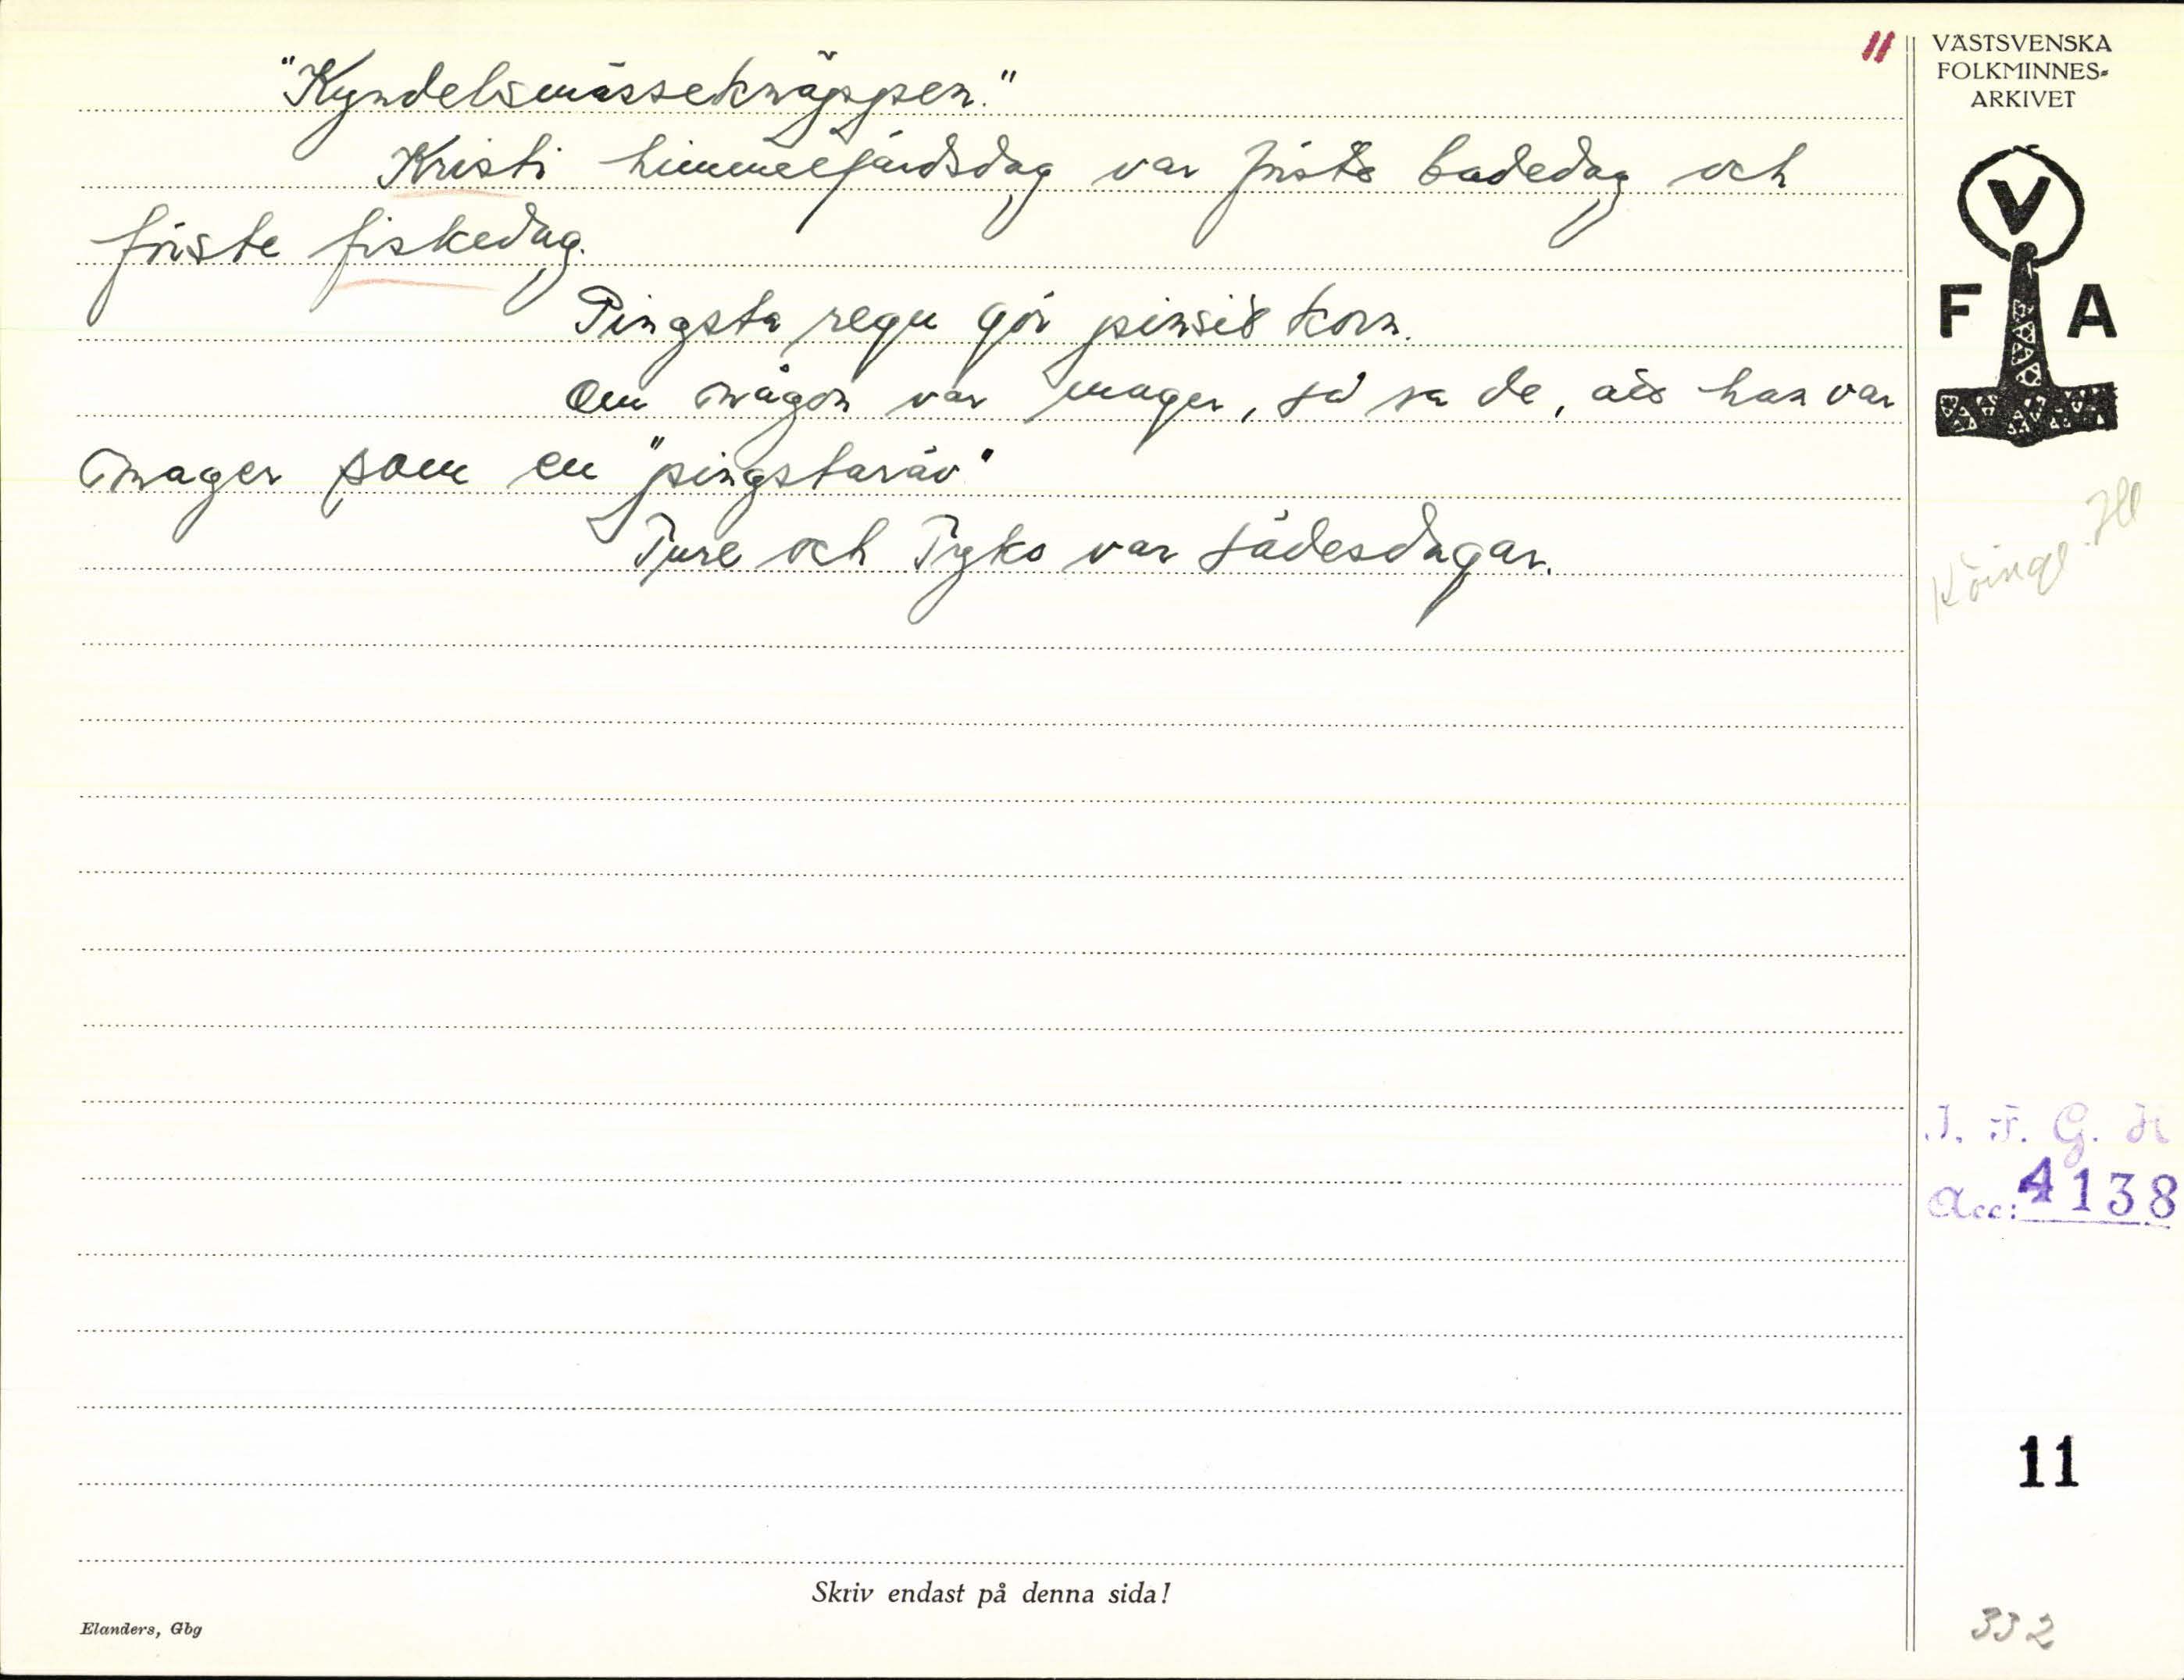 "Kyndelsmässeknäppen."
Kristi himmelfärdsdag var första badedag och
förste fiskedag.
Pingsta regn gör pinsis korn.
Om någon var mager, så sa de, att han var
mager som en "pingstaräv"
Ture och Tyko var sädesdagar.
Skriv endast på denna sida!
Elanders, Gbg
11
VÄSTSVENSKA
FOLKMINNES-
ARKIVET
V
F A
Köinge Hl
I. F. G. H
Acc: 4138
11
332